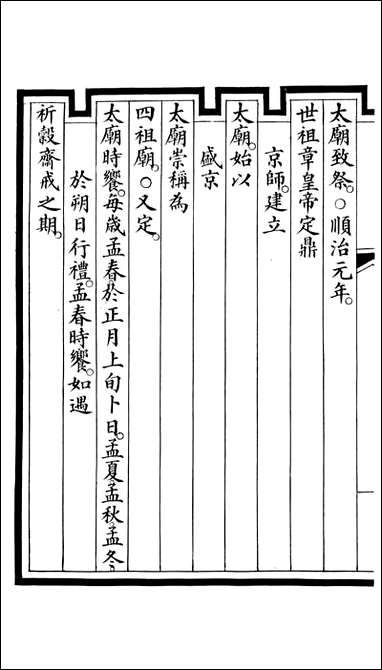 太廟致祭。○順治元年。
世祖章皇帝定鼎
京師。建立
太廟。始以
盛京
太廟崇稱為
四祖廟。○又定。
太廟時饗。每歲孟春於正月上旬卜日。孟夏孟秋孟冬。
於朔日行禮。孟春時饗。如遇
祈穀齋戒之期。